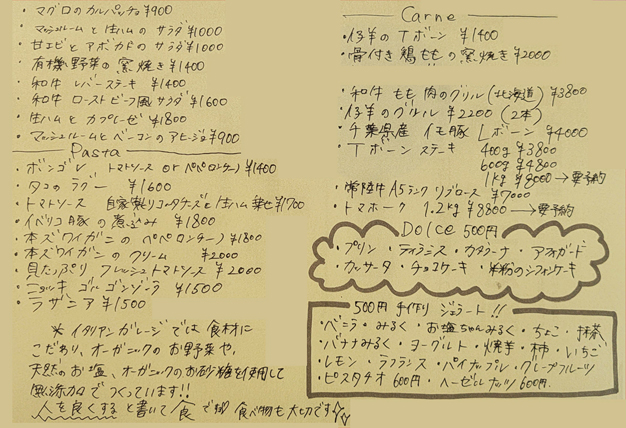 ・マグロのカルパッチョ ¥900
・マッシュルームと生ハムの サラダ ¥1000
・甘エビとアボカドのサラダ ¥1000
・有機野菜の窯焼き ¥1400
・和牛 レバーステーキ ¥1400
・和牛 ローストビーフ風サラダ ¥1600
・生ハムと カプレーゼ ¥1800
・マッシュルームとベーコンのアヒージョ ¥900
Pasta
・ボンゴレ トマトソース or ペペロンチーノ ¥1400
・タコのラグー ¥1600
・トマトソース 自家製リコッタチーズと生ハム乗せ ¥1700
・イベリコ豚の煮込み ¥1800
・本ズワイガニの ペペロンチーノ ¥1800
・本ズワイガニの クリーム ¥2000
・貝たっぷり フレッシュトマトソース ¥2000
・ニョッキ ゴルゴンゾーラ ¥1500
・ラザニア ¥1500
※イタリアンガレージでは食材に
こだわり、オーガニックのお野菜や、
天然のお塩、オーガニックのお砂糖を使用して
無添加でつくっています!!
人を良くすると書いて食です 食べ物も大切です☆
Carne
・仔羊のTボーン ¥1400
・骨付き鶏ももの窯焼き ¥2000
・和牛もも肉のグリル(北海道) ¥3800
・仔羊のグリル ¥2200(2本)
・千葉県産 イモ豚 Lボーン ¥4000
・Tボーンステーキ 400g ¥3800
600g ¥4800
1kg ¥8000→要予約
・常陸牛A5ランク リブロース ¥7000
・トマホーク 1.2kg ¥8800→要予約
Dolce 500円
・プリン・ティラミス・カタラーナ・アフォガード
・カッサータ・チョコケーキ・米粉のシフォンケーキ
500円 手作り ジェラート!!
・バニラ・みるく・お塩ちゃんみるく・ちょこ・抹茶
・バナナみるく・ヨーグルト・焼芋・柿・いちご
・レモン・ラフランス・パイナップル・グレープフルーツ
・ピスタチオ 600円・ヘーゼルナッツ 600円.